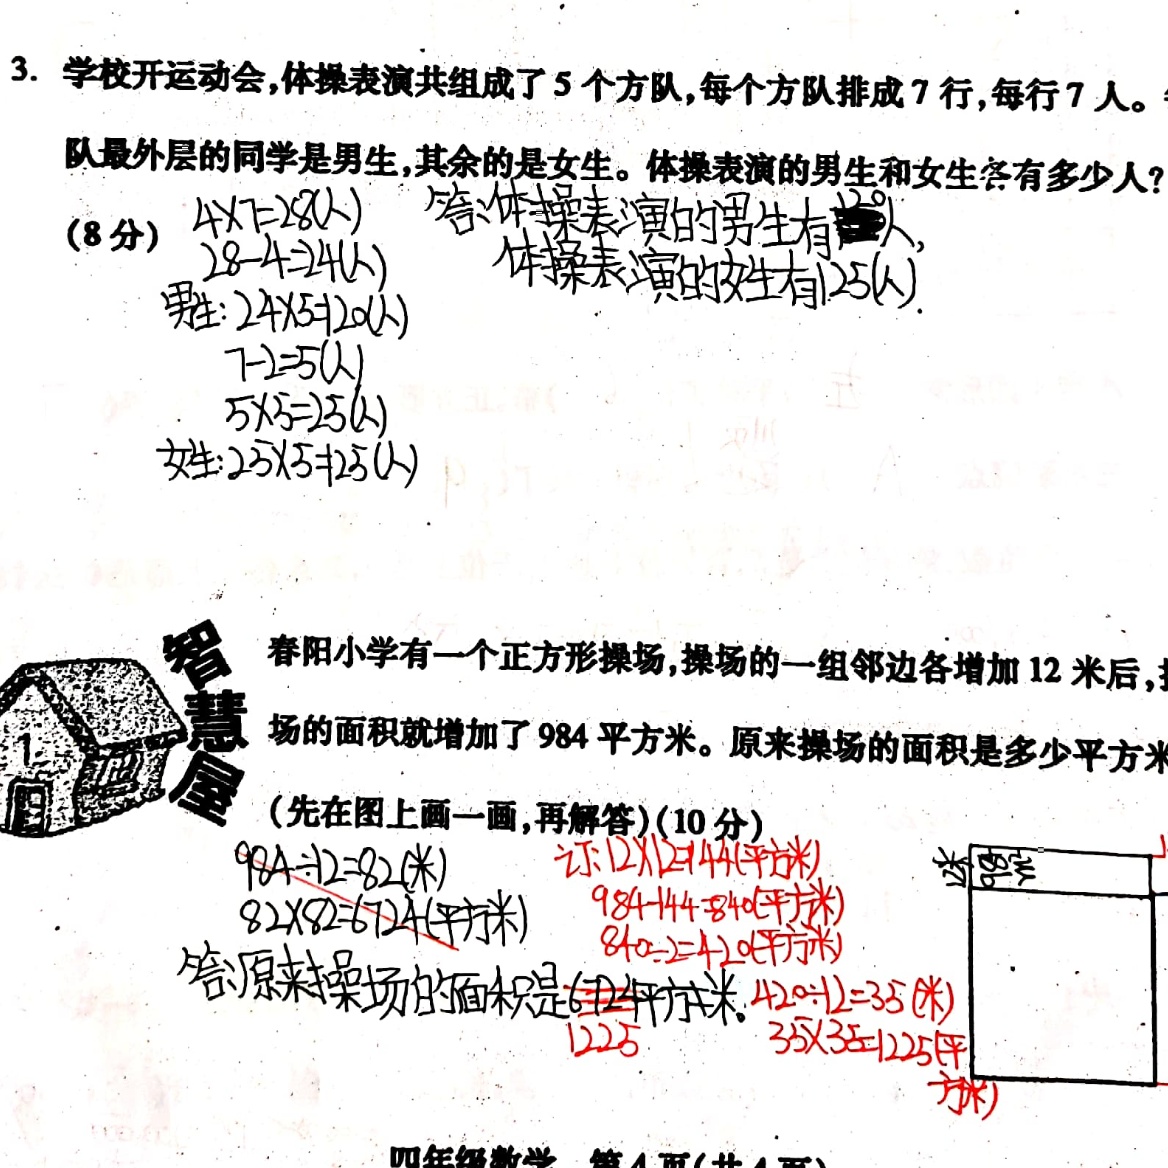 3. 学校开运动会,体操表演共组成了5个方队,每个方队排成7行,每行7人。
队最外层的同学是男生,其余的是女生。体操表演的男生和女生各有多少人?
(8分)
4×7=28(人)
28-4=24(人)
男生:24×5=120(人)
7-2=5(人)
5×5=25(人)
女生:25×5=125(人)
答:体操表演的男生有120人,
体操表演的女生有125(人).
智慧屋
春阳小学有一个正方形操场,操场的一组邻边各增加12米后,
场的面积就增加了984平方米。原来操场的面积是多少平方米
(先在图上画一画,再解答)(10分)
984÷12=82(米)
82×82=6724(平方米)
答:原来操场的面积是6724平方米.
1225
订:12×12=144(平方米)
984-144=840(平方米)
840÷2=420(平方米)
420÷12=35(米)
35×35=1225(平
方米)
12米
984
四年级数学 第4页(共4页)